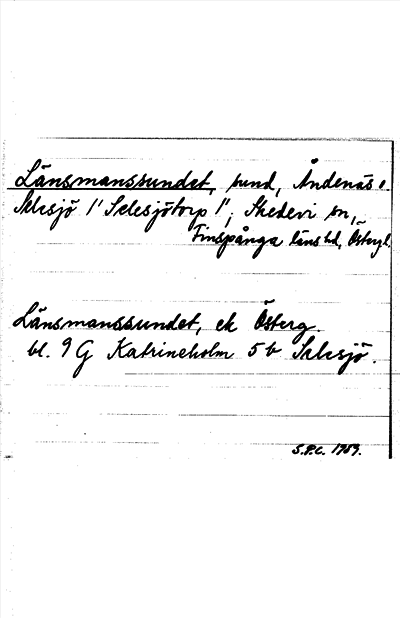 Länsmanssundet, sund, Åndenäs o
Selesjö 1/1 Selesjötorp 1/1, Skedevi sn,
Finspånga läns hd, Östergl.
Länsmanssundet, ek Österg.
bl. 9 G Katrineholm 5 b Selesjö.
S.P.C. 1959.